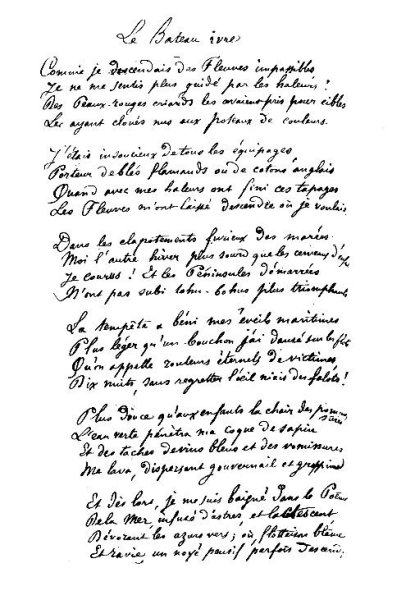 Le Bateau ivre
Comme je descendais des Fleuves impassibles
Je ne me sentis plus guidé par les haleurs :
Des Peaux-rouges criards les avaient pris pour cibles
Les ayant cloués nus aux poteaux de couleurs.
J'étais insoucieux de tous les équipages,
Porteur de blés flamands ou de cotons anglais
Quand avec mes haleurs ont fini ces tapages
Les Fleuves m'ont laissé descendre où je voulais
Dans les clapotements furieux des marées
Moi l'autre hiver plus sourd que les cerveaux d'enf
Je courus ! Et les Péninsules démarrées
N'ont pas subi tohu-bohus plus triomphants
La tempête a béni mes éveils maritimes
Plus léger qu'un bouchon j'ai dansé sur les flots
Qu'on appelle rouleurs éternels de victimes
Dix nuits, sans regretter l'œil niais des falots !
Plus douce qu'aux enfants la chair des pommes sûres
L'eau verte pénétra ma coque de sapin
Et des taches de vins bleus et des vomissures
Me lava, dispersant gouvernail et grappin
Et dès lors, je me suis baigné dans le Poème
De la Mer, infusé d'astres, et latescent
Dévorant les azurs verts ; où, flottaison blême
Et ravie, un noyé pensif parfois descend ;